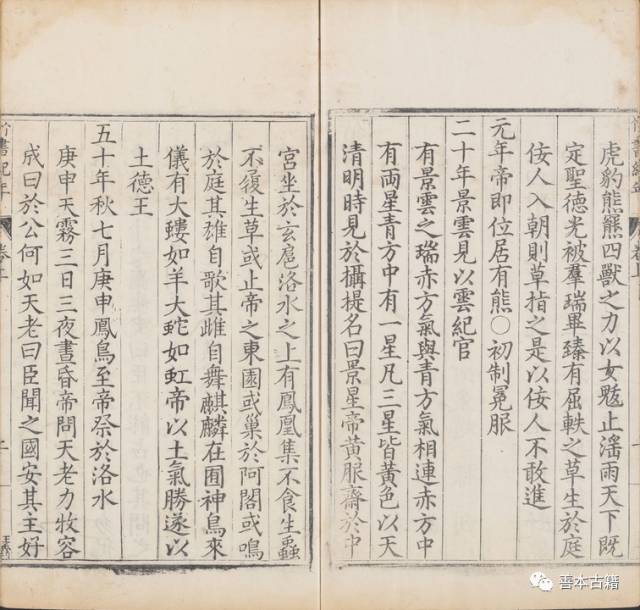 虎豹熊羆四獸之力以女魃止淫雨天下既
定聖德光被羣瑞畢臻有屈軼之草生於庭
佞人入朝則草指之是以佞人不敢進
元年帝即位居有熊〇初制冕服
二十年景雲見以雲紀官
有景雲之瑞赤方氣與青方氣相連赤方中
有兩星青方中有一星凡三星皆黃色以天
清明時見於攝提名曰景星帝黃服齋於中
宮坐於玄扈洛水之上有鳳凰集不食生蟲
不履生草或止帝之東園或巢於阿閣或鳴
於庭其雄自歌其雌自舞麒麟在囿神鳥來
儀有大螻如羊大螾如虹帝以土氣勝遂以
土德王
五十年秋七月庚申鳳鳥至帝祭於洛水
庚申天霧三日三夜晝昏帝問天老力牧容
成曰於公何如天老曰臣聞之國安其主好
竹書紀年
卷上
善本古籍